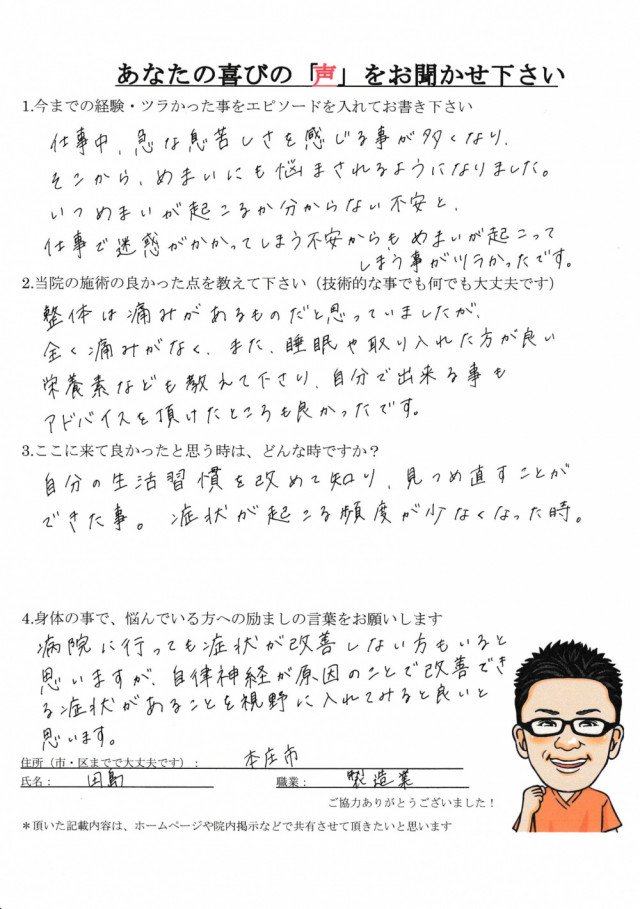 あなたの喜びの「声」をお聞かせ下さい
1.今までの経験・ツラかった事をエピソードを入れてお書き下さい
仕事中、急な息苦しさを感じる事が多くなり、
そこから、めまいにも悩まされるようになりました。
いつめまいが起こるか分からない不安と、
仕事で迷惑がかかってしまう不安からもめまいが起こって
しまう事がツラかったです。
2.当院の施術の良かった点を教えて下さい（技術的な事でも何でも大丈夫です）
整体は痛みがあるものだと思っていましたが、
全く痛みがなく、また、睡眠や取り入れた方が良い
栄養素なども教えて下さり、自分で出来る事も
アドバイスを頂けたところも良かったです。
3.ここに来て良かったと思う時は、どんな時ですか？
自分の生活習慣を改めて知り、見つめ直すことが
できた事。症状が起こる頻度が少なくなった時。
4.身体の事で、悩んでいる方への励ましの言葉をお願いします
病院に行っても症状が改善しない方もいると
思いますが、自律神経が原因のことで改善でき
る症状があることを視野に入れてみると良いと
思います。
住所（市・区までで大丈夫です）： 本庄市
氏名： 田島 職業： 製造業
ご協力ありがとうございました！
＊頂いた記載内容は、ホームページや院内掲示などで共有させて頂きたいと思います